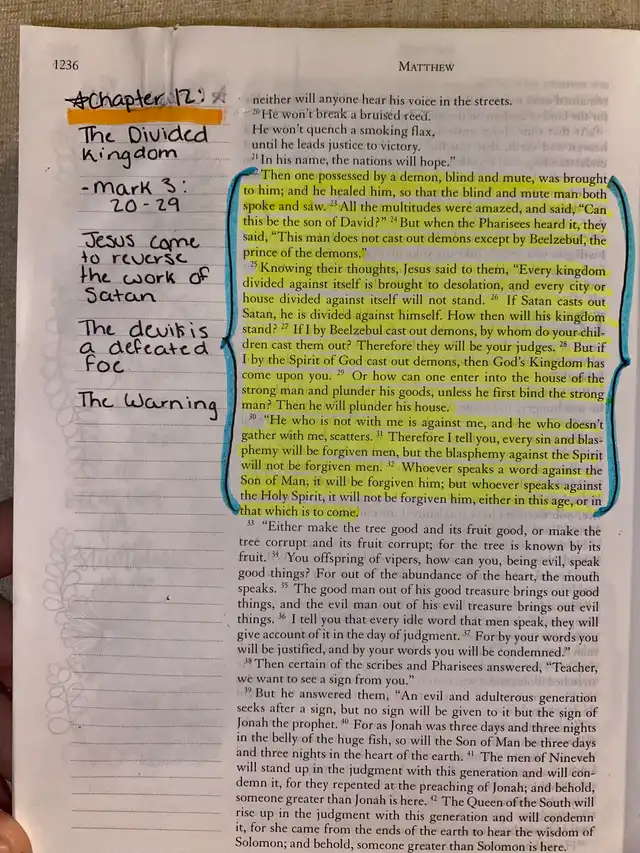 1236
MATTHEW
*Chapter 12:*
The Divided
Kingdom
- Mark 3:
20-29
Jesus came
to reverse
the work of
Satan
The devil is
a defeated
foe
The Warning
neither will anyone hear his voice in the streets.
20 He won't break a bruised reed.
He won't quench a smoking flax,
until he leads justice to victory.
21 In his name, the nations will hope."
22 Then one possessed by a demon, blind and mute, was brought
to him; and he healed him, so that the blind and mute man both
spoke and saw. 23 All the multitudes were amazed, and said, "Can
this be the son of David?" 24 But when the Pharisees heard it, they
said, "This man does not cast out demons except by Beelzebul, the
prince of the demons."
25 Knowing their thoughts, Jesus said to them, "Every kingdom
divided against itself is brought to desolation, and every city or
house divided against itself will not stand. 26 If Satan casts out
Satan, he is divided against himself. How then will his kingdom
stand? 27 If I by Beelzebul cast out demons, by whom do your chil-
dren cast them out? Therefore they will be your judges. 28 But if
I by the Spirit of God cast out demons, then God's Kingdom has
come upon you. 29 Or how can one enter into the house of the
strong man and plunder his goods, unless he first bind the strong
man? Then he will plunder his house.
30 "He who is not with me is against me, and he who doesn't
gather with me, scatters. 31 Therefore I tell you, every sin and blas-
phemy will be forgiven men, but the blasphemy against the Spirit
will not be forgiven men. 32 Whoever speaks a word against the
Son of Man, it will be forgiven him; but whoever speaks against
the Holy Spirit, it will not be forgiven him, either in this age, or in
that which is to come.
33 "Either make the tree good and its fruit good, or make the
tree corrupt and its fruit corrupt; for the tree is known by its
fruit. 34 You offspring of vipers, how can you, being evil, speak
good things? For out of the abundance of the heart, the mouth
speaks. 35 The good man out of his good treasure brings out good
things, and the evil man out of his evil treasure brings out evil
things. 36 I tell you that every idle word that men speak, they will
give account of it in the day of judgment. 37 For by your words you
will be justified, and by your words you will be condemned."
38 Then certain of the scribes and Pharisees answered, "Teacher,
we want to see a sign from you."
39 But he answered them, "An evil and adulterous generation
seeks after a sign, but no sign will be given to it but the sign of
Jonah the prophet. 40 For as Jonah was three days and three nights
in the belly of the huge fish, so will the Son of Man be three days
and three nights in the heart of the earth. 41 The men of Nineveh
will stand up in the judgment with this generation and will con-
demn it, for they repented at the preaching of Jonah; and behold,
someone greater than Jonah is here. 42 The Queen of the South will
rise up in the judgment with this generation and will condemn
it, for she came from the ends of the earth to hear the wisdom of
Solomon; and behold, someone greater than Solomon is here.